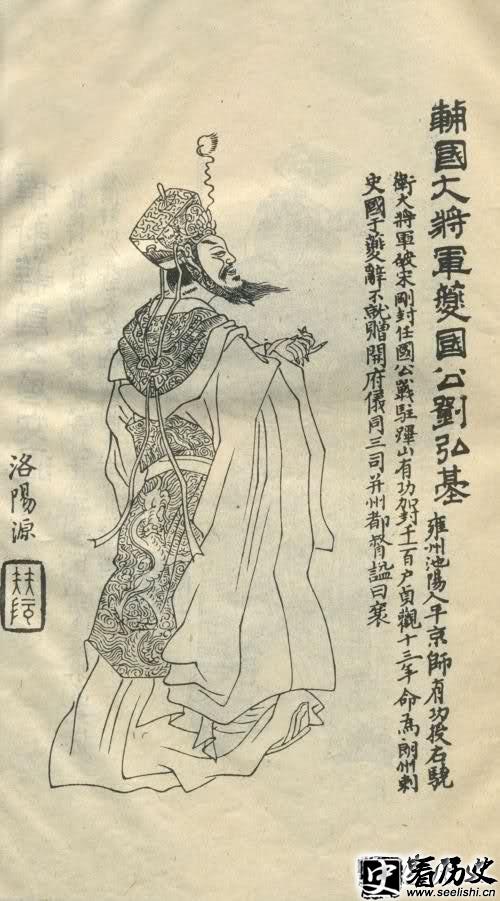 輔國大將軍夔國公劉弘基 雍州池陽人平京師有功授右驍
衛大將軍破宋剛封任國公戰駐蹕山有功加封千一百户貞觀十三年命為朗州刺
史國于夔辭不就贈開府儀同三司并州都督謚曰襄
洛陽源
史 看历史
www.seelishi.cn